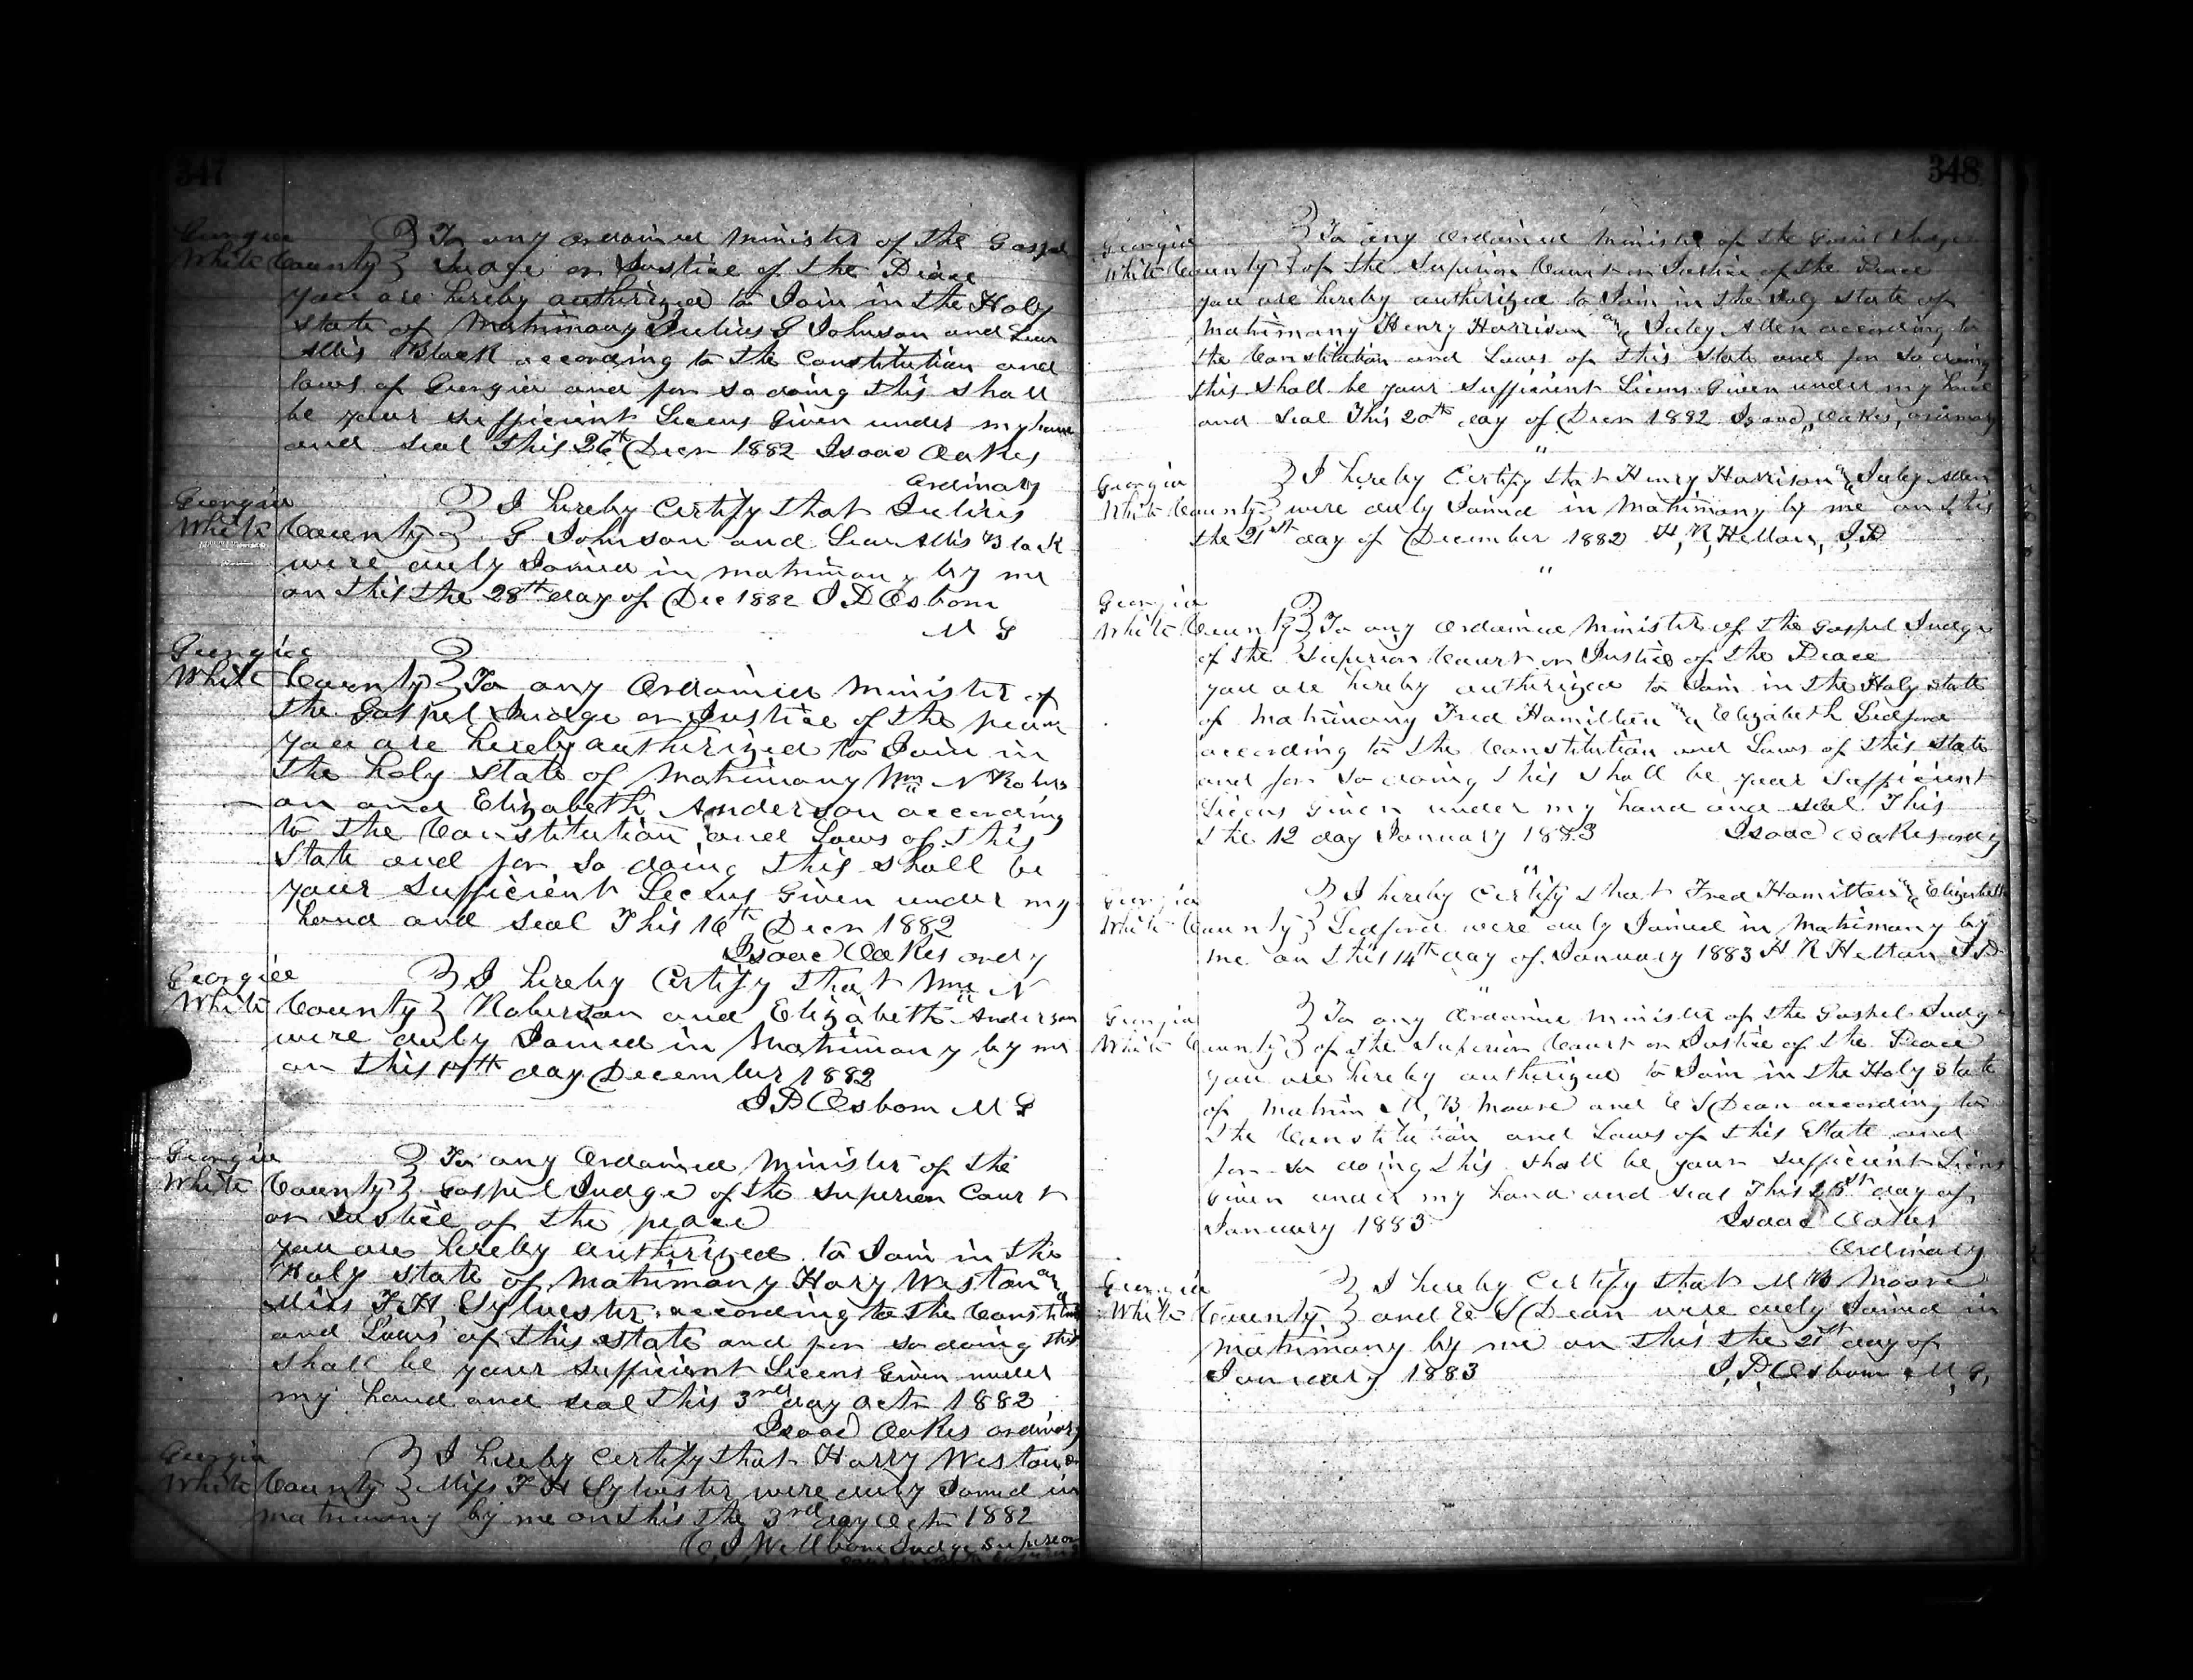 347
Georgia } To any ordained minister of the Gospel
White County } Judge or Justice of the Peace
you are hereby authorized to Join in the Holy
state of Matrimony Julius G Johnson and
Black according to the Constitution and
laws of Georgia and for so doing this shall
be your sufficient Licens Given under my hand
and seal this 26th Decr 1882 Isaac Oakes
Ordinary
Georgia } I hereby Certify that Julius
White County } G Johnson and Black
were duly Joined in matrimony by me
on this the 28th day of Dec 1882 J D Osborn
M G
Georgia }
White County } To any Ordained minister of
the Gospel Judge or Justice of the peace
you are hereby authorized to Join in
the holy State of Matrimony Wm N Robers
on and Elizabeth Anderson according
to the Constitution and Laws of this
State and for so doing this shall be
your sufficient Licens Given under my
hand and seal This 16th Decr 1882
Isaac Oakes ordy
Georgia } I hereby Certify that Wm N
White County } Roberson and Elizabeth Anderson
were duly Joined in Matrimony by me
on this 17th day December 1882
J D Osborn M G
Georgia } To any Ordained Minister of the
White County } Gospel Judge of the Superior Court
or Justice of the peace
you are hereby authorized to Join in the
Holy state of Matrimony Hary Weston an
Miss F H Sylvester according to the Constitution
and Laws of this state and for so doing this
shall be your sufficient Licens Given under
my hand and seal this 3rd day Octr 1882
Isaac Oakes ordinary
Georgia } I hereby certify that Harry Weston
White County } Miss F H Sylvester were duly Joined in
matrimony by me on this the 3rd day Octr 1882
C, J Wellborn Judge Superior
348
Georgia } To any Ordained minister of the Gospel Judge
White County } of the Superior Court or Justice of the Peace
you are hereby authorized to Join in the holy state of
Matrimony Henry Harrison an Juley Allen according to
the Constitution and Laws of this state and for so doing
this shall be your sufficient Licens Given under my hand
and seal This 20th day of Decr 1882 Isaac Oakes, ordinary
"
Georgia } I hereby Certify that Henry Harrison an Juley Allen
White County } were duly Joined in Matrimony by me on this
the 21st day of December 1882 H, R, Helton, J,P
"
Georgia
White County } To any Ordained Minister of the Gospel Judge
of the Superior Court or Justice of the Peace
you are hereby authorized to Join in the Holy state
of Matrimony Fred Hamilton an Elizabeth Ledford
according to the Constitution and Laws of this state
and for so doing this shall be your Sufficient
Licens Given under my hand and seal This
the 12 day January 1883 Isaac Oakes ordy
"
Georgia } I hereby Certify that Fred Hamilton an Elizabeth
White County } Ledford were duly Joined in Matrimony by
me on this 14th day of January 1883 H R Helton J P
"
Georgia } To any Ordained Minister of the Gospel Judge
White County } of the Superior Court or Justice of the Peace
you are hereby authorized to Join in the Holy State
of Matrim M, B, Moore and E S Dean according to
the Constitution and Laws of this State and
for so doing this shall be your sufficient Licens
given under my hand and seal This day of
January 1883 Isaac Oakes
Ordinary
Georgia } I hereby Certify that M B Moore
White County } and E S Dean were duly Joined in
Matrimony by me on this the 21st day of
January 1883 J, D, Osborn M, G,